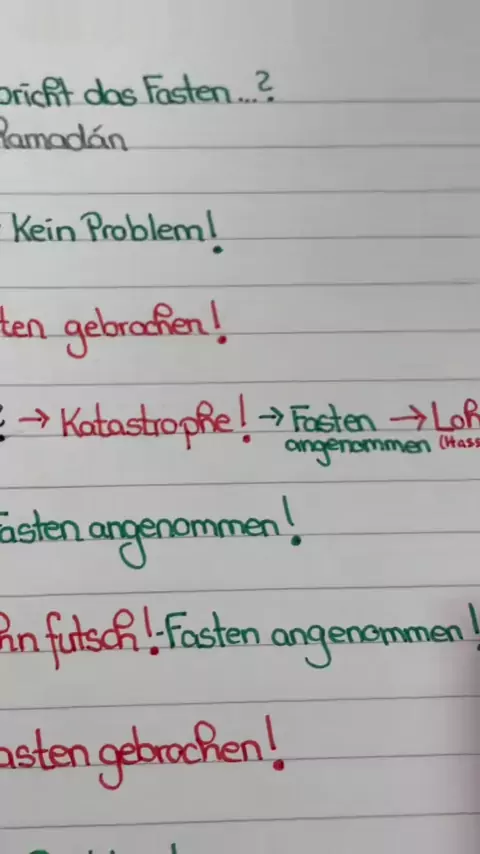 bricht das Fasten...?
Ramadán
Kein Problem!
ten gebrochen!
→ Katastrophe! → Fasten → Loh
angenommen (Hass
Fasten angenommen!
hn futsch!-Fasten angenommen!
asten gebrochen!